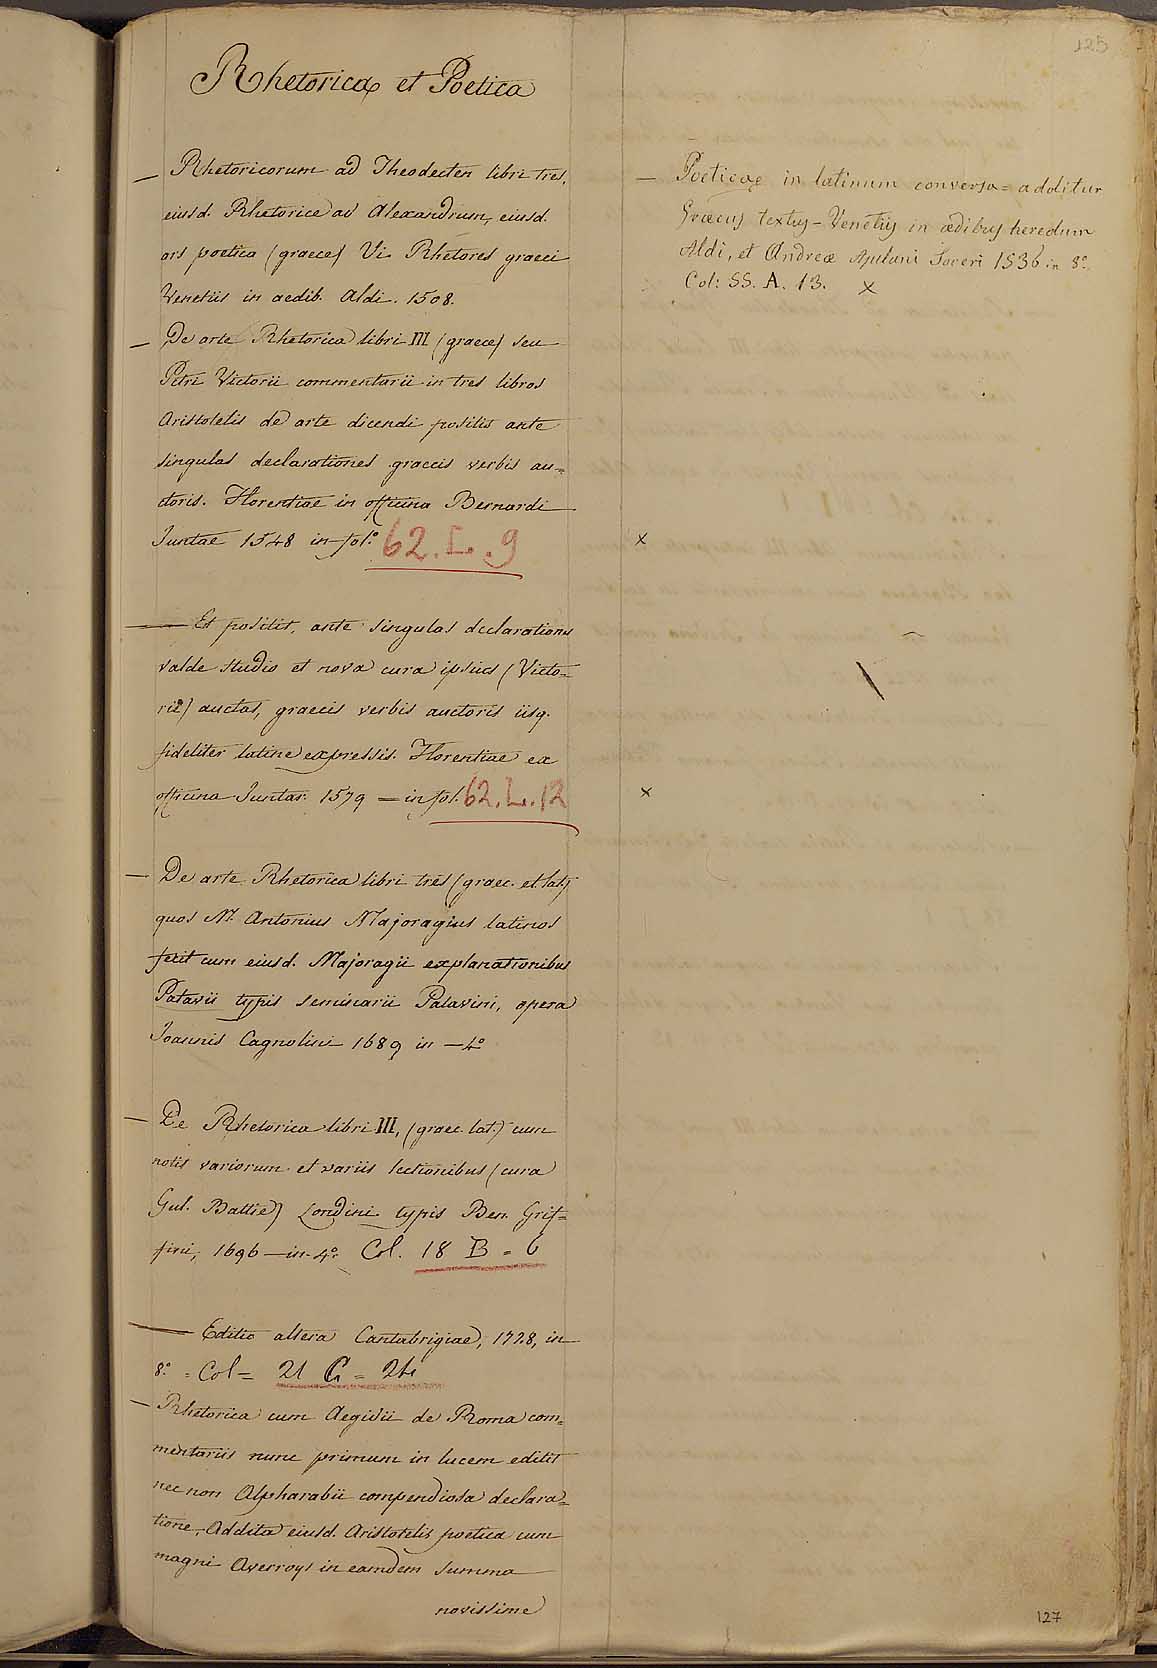 125
Rhetorica et Poetica
— Rhetoricorum ad Theodecten libri tres,
eiusd. Rhetorice ad Alexandrum, eiusd.
ars poetica (graece) Vi Rhetores graeci
Venetiis in aedib. Aldi. 1508.
— De arte Rhetorica libri III (graece) seu
Petri Victorii commentarii in tres libros
Aristotelis de arte dicendi positis ante
singulas declarationes graecis verbis au=
ctoris. Florentiae in officina Bernardi
Juntae 1548 in fol.° 62. L. 9
— Et positis, ante singulas declarationes
valde studio et nova cura ipsius (Victo=
rii) auctas, graecis verbis auctoris iisq.
fideliter latine expressis. Florentiae ex
officina Juntar. 1579 — in fol. 62. L. 12
— De arte Rhetorica libri tres (graec. et lat.)
quos M. Antonius Majoragius latinos
fecit cum eiusd. Majoragii explanationibus
Patavii typis seminarii Patavini, opera
Joannis Cagnolini 1689 in — 4°
— De Rhetorica libri III, (graec. lat.) cum
notis variorum et variis lectionibus (cura
Gul. Battie) Londini typis Ben. Grif=
fini, 1696 — in 4° Col. 18 B = 6
— Editio altera Cantabrigiae, 1728, in
8.° = Col = 21 C = 24
— Rhetorica cum Aegidii de Roma com=
mentariis nunc primum in lucem editis
nec non Alpharabii compendiosa declara=
tione, Addita eiusd. Aristotelis poetica cum
magni Averroys in eamdem summa
novissime
— Poeticae in latinum conversa = additur
Graecus textus – Venetiis in ædibus heredum
Aldi, et Andreæ Asulani Soceri 1536 in 8°.
Col: SS. A. 13. x
x
x
127